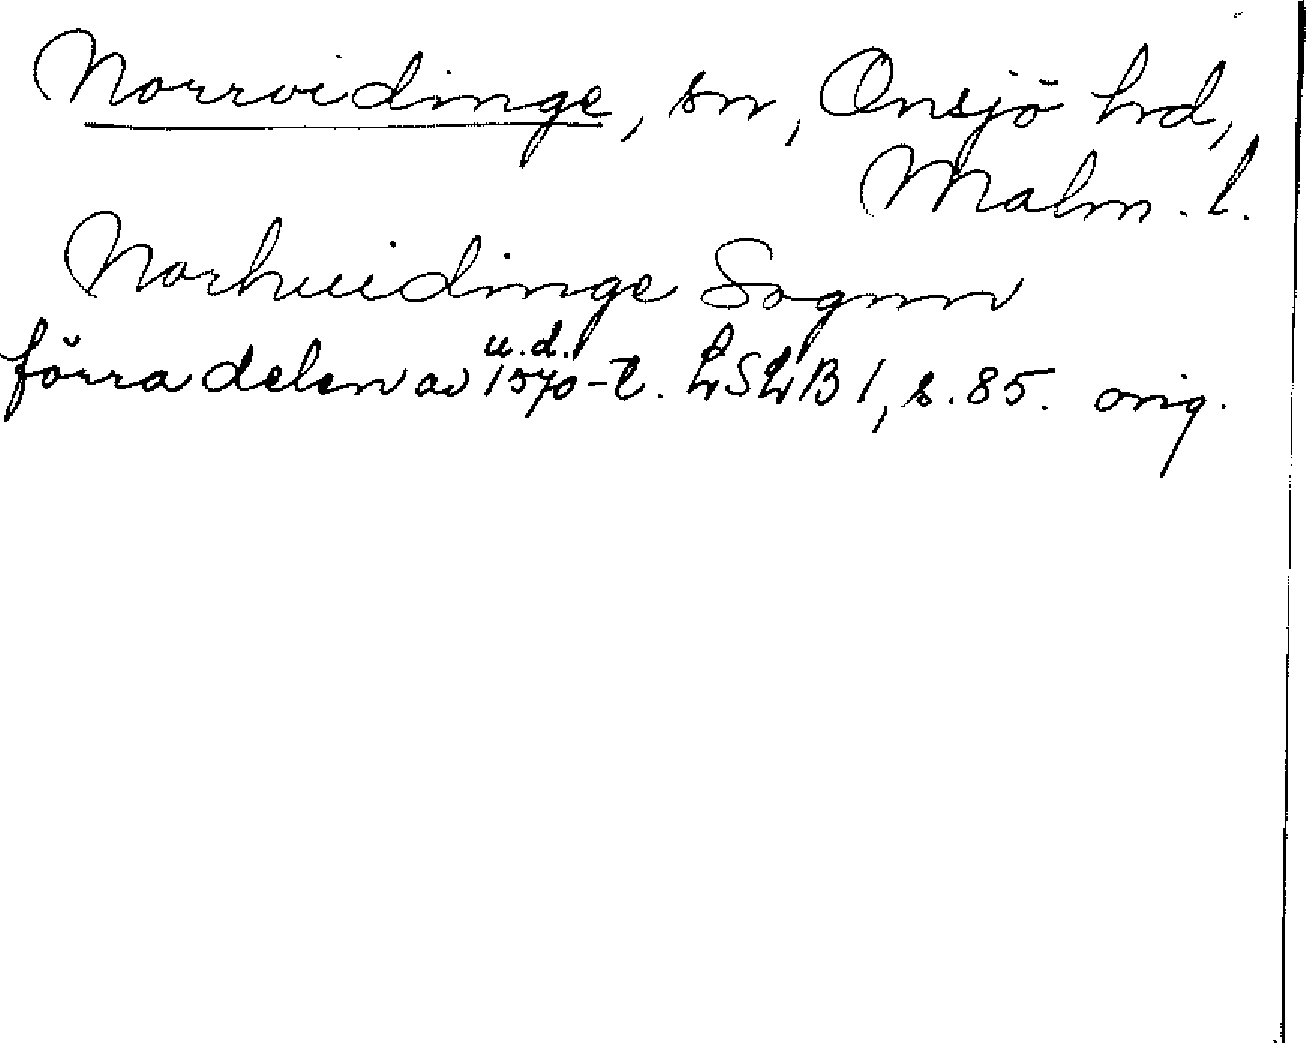 Norrvidinge, sn, Onsjö hd,
Malm. l.
Norhuidinge Sognn
u.d.
förra delen av 1570-t. LSLB 1, s. 85. orig.